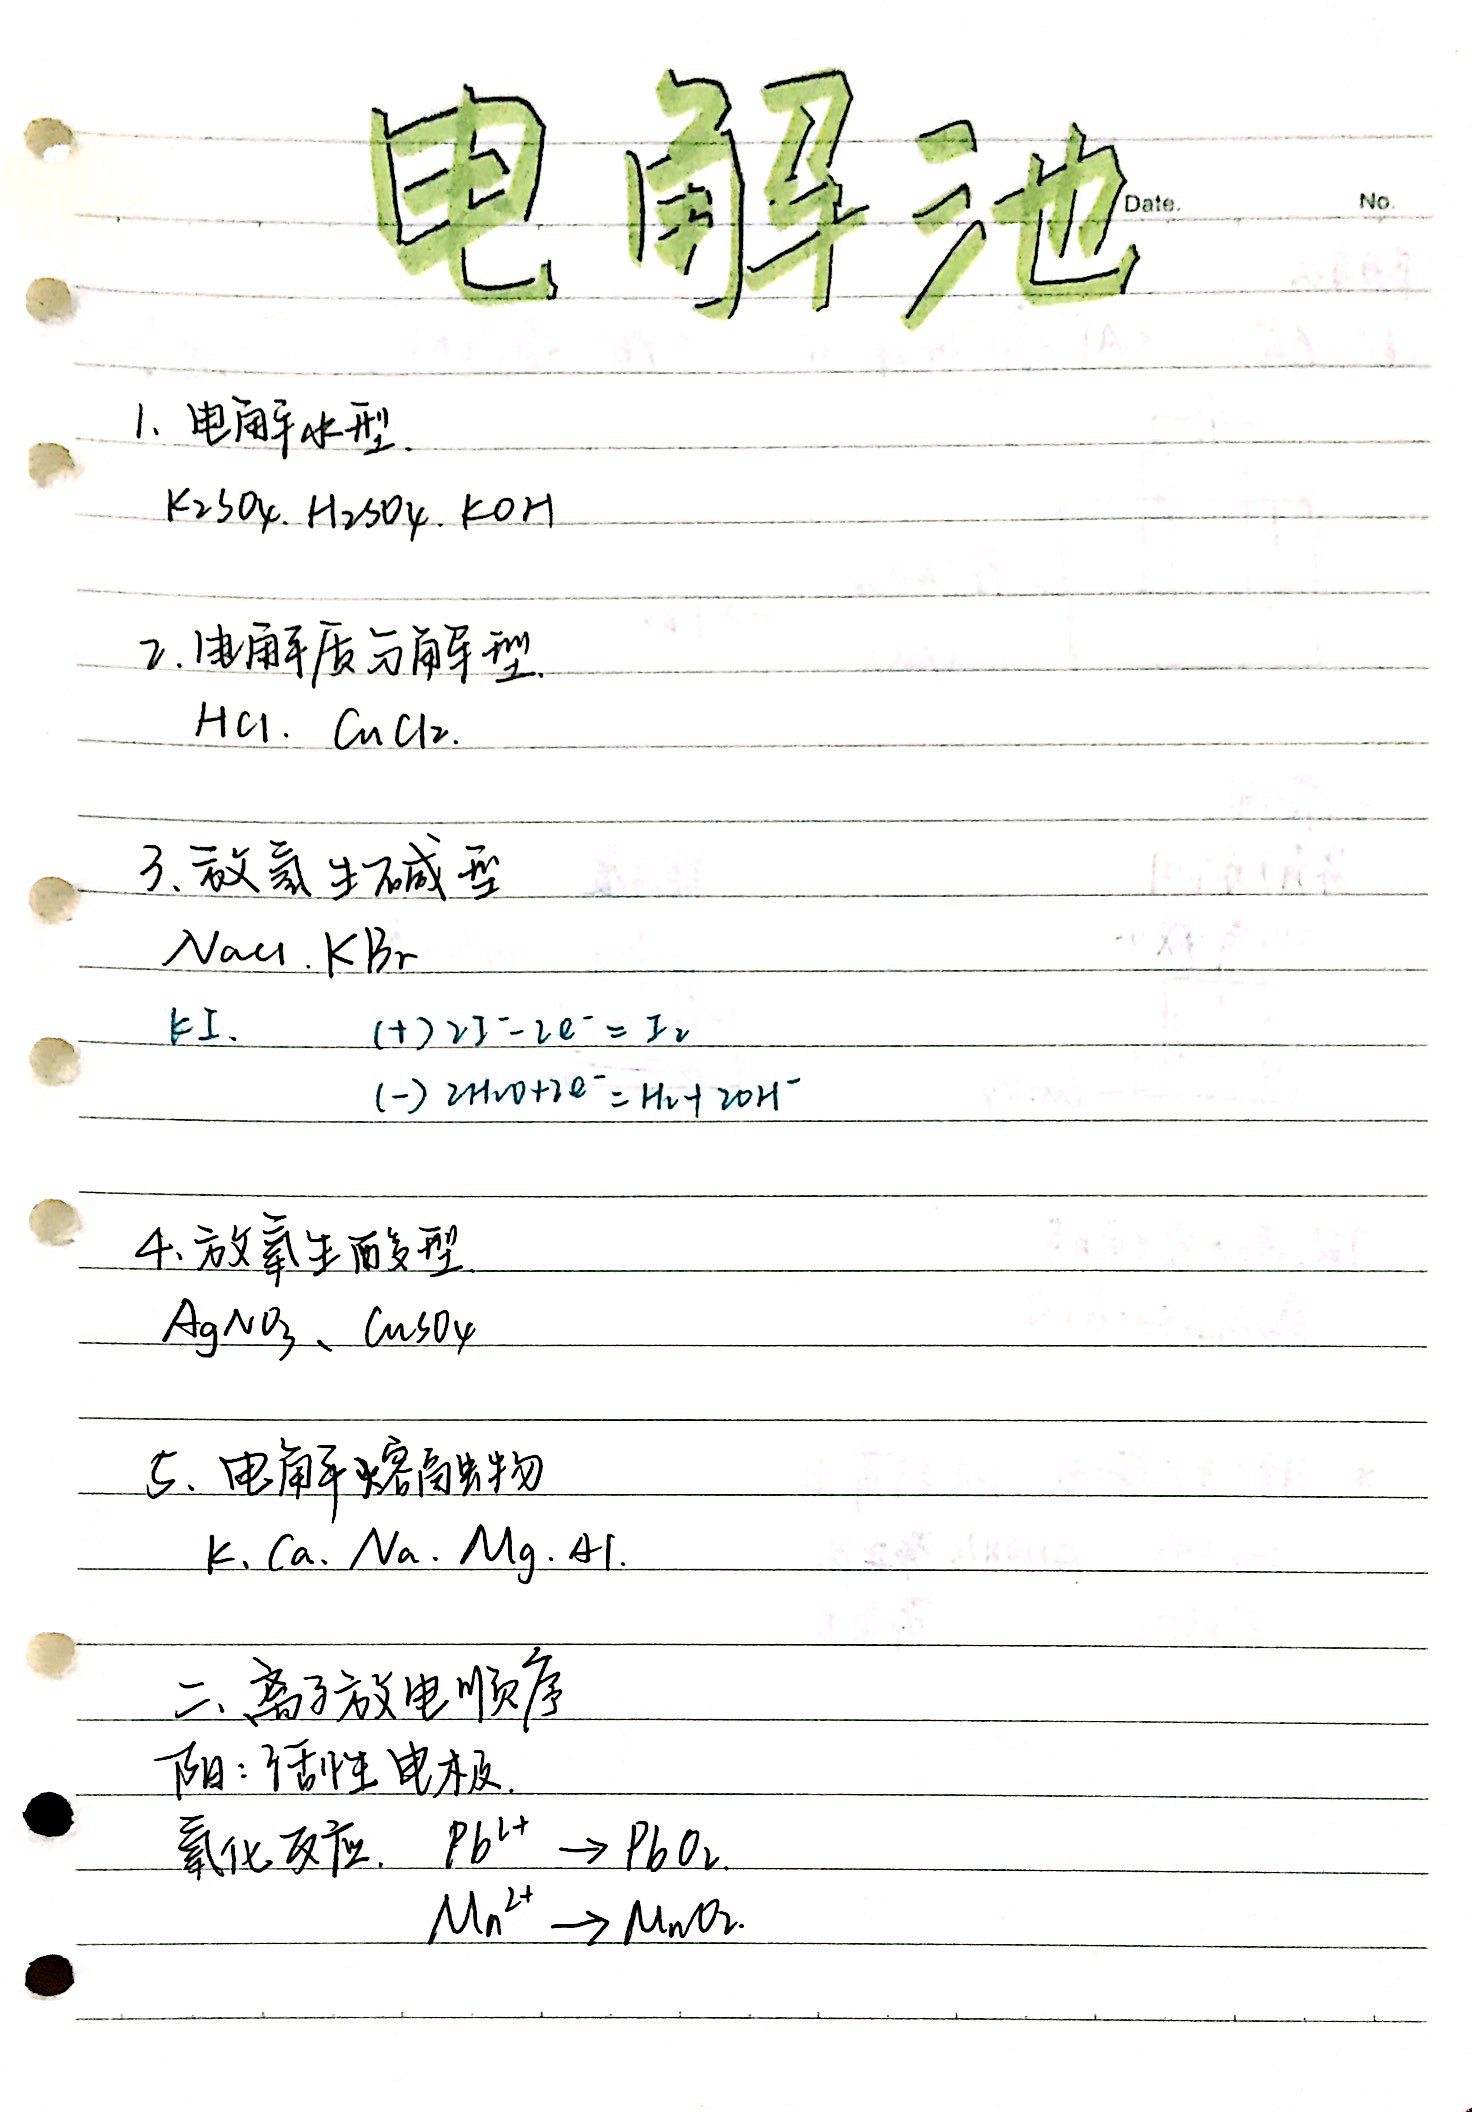 电解池
Date. No.
1、电解水型.
K2SO4. H2SO4. KOH
2. 电解质分解型.
HCl. CuCl2.
3、放氢生碱型
NaCl. KBr
KI. (+) 2I⁻-2e⁻=I2
(-) 2H2O+2e⁻=H2+2OH⁻
4、放氧生酸型.
AgNO3、CuSO4
5、电解熔融物
K、Ca、Na. Mg. Al.
二、离子放电顺序
阳:活性电极.
氧化反应. Pb²⁺ → PbO2.
Mn²⁺ → MnO2.